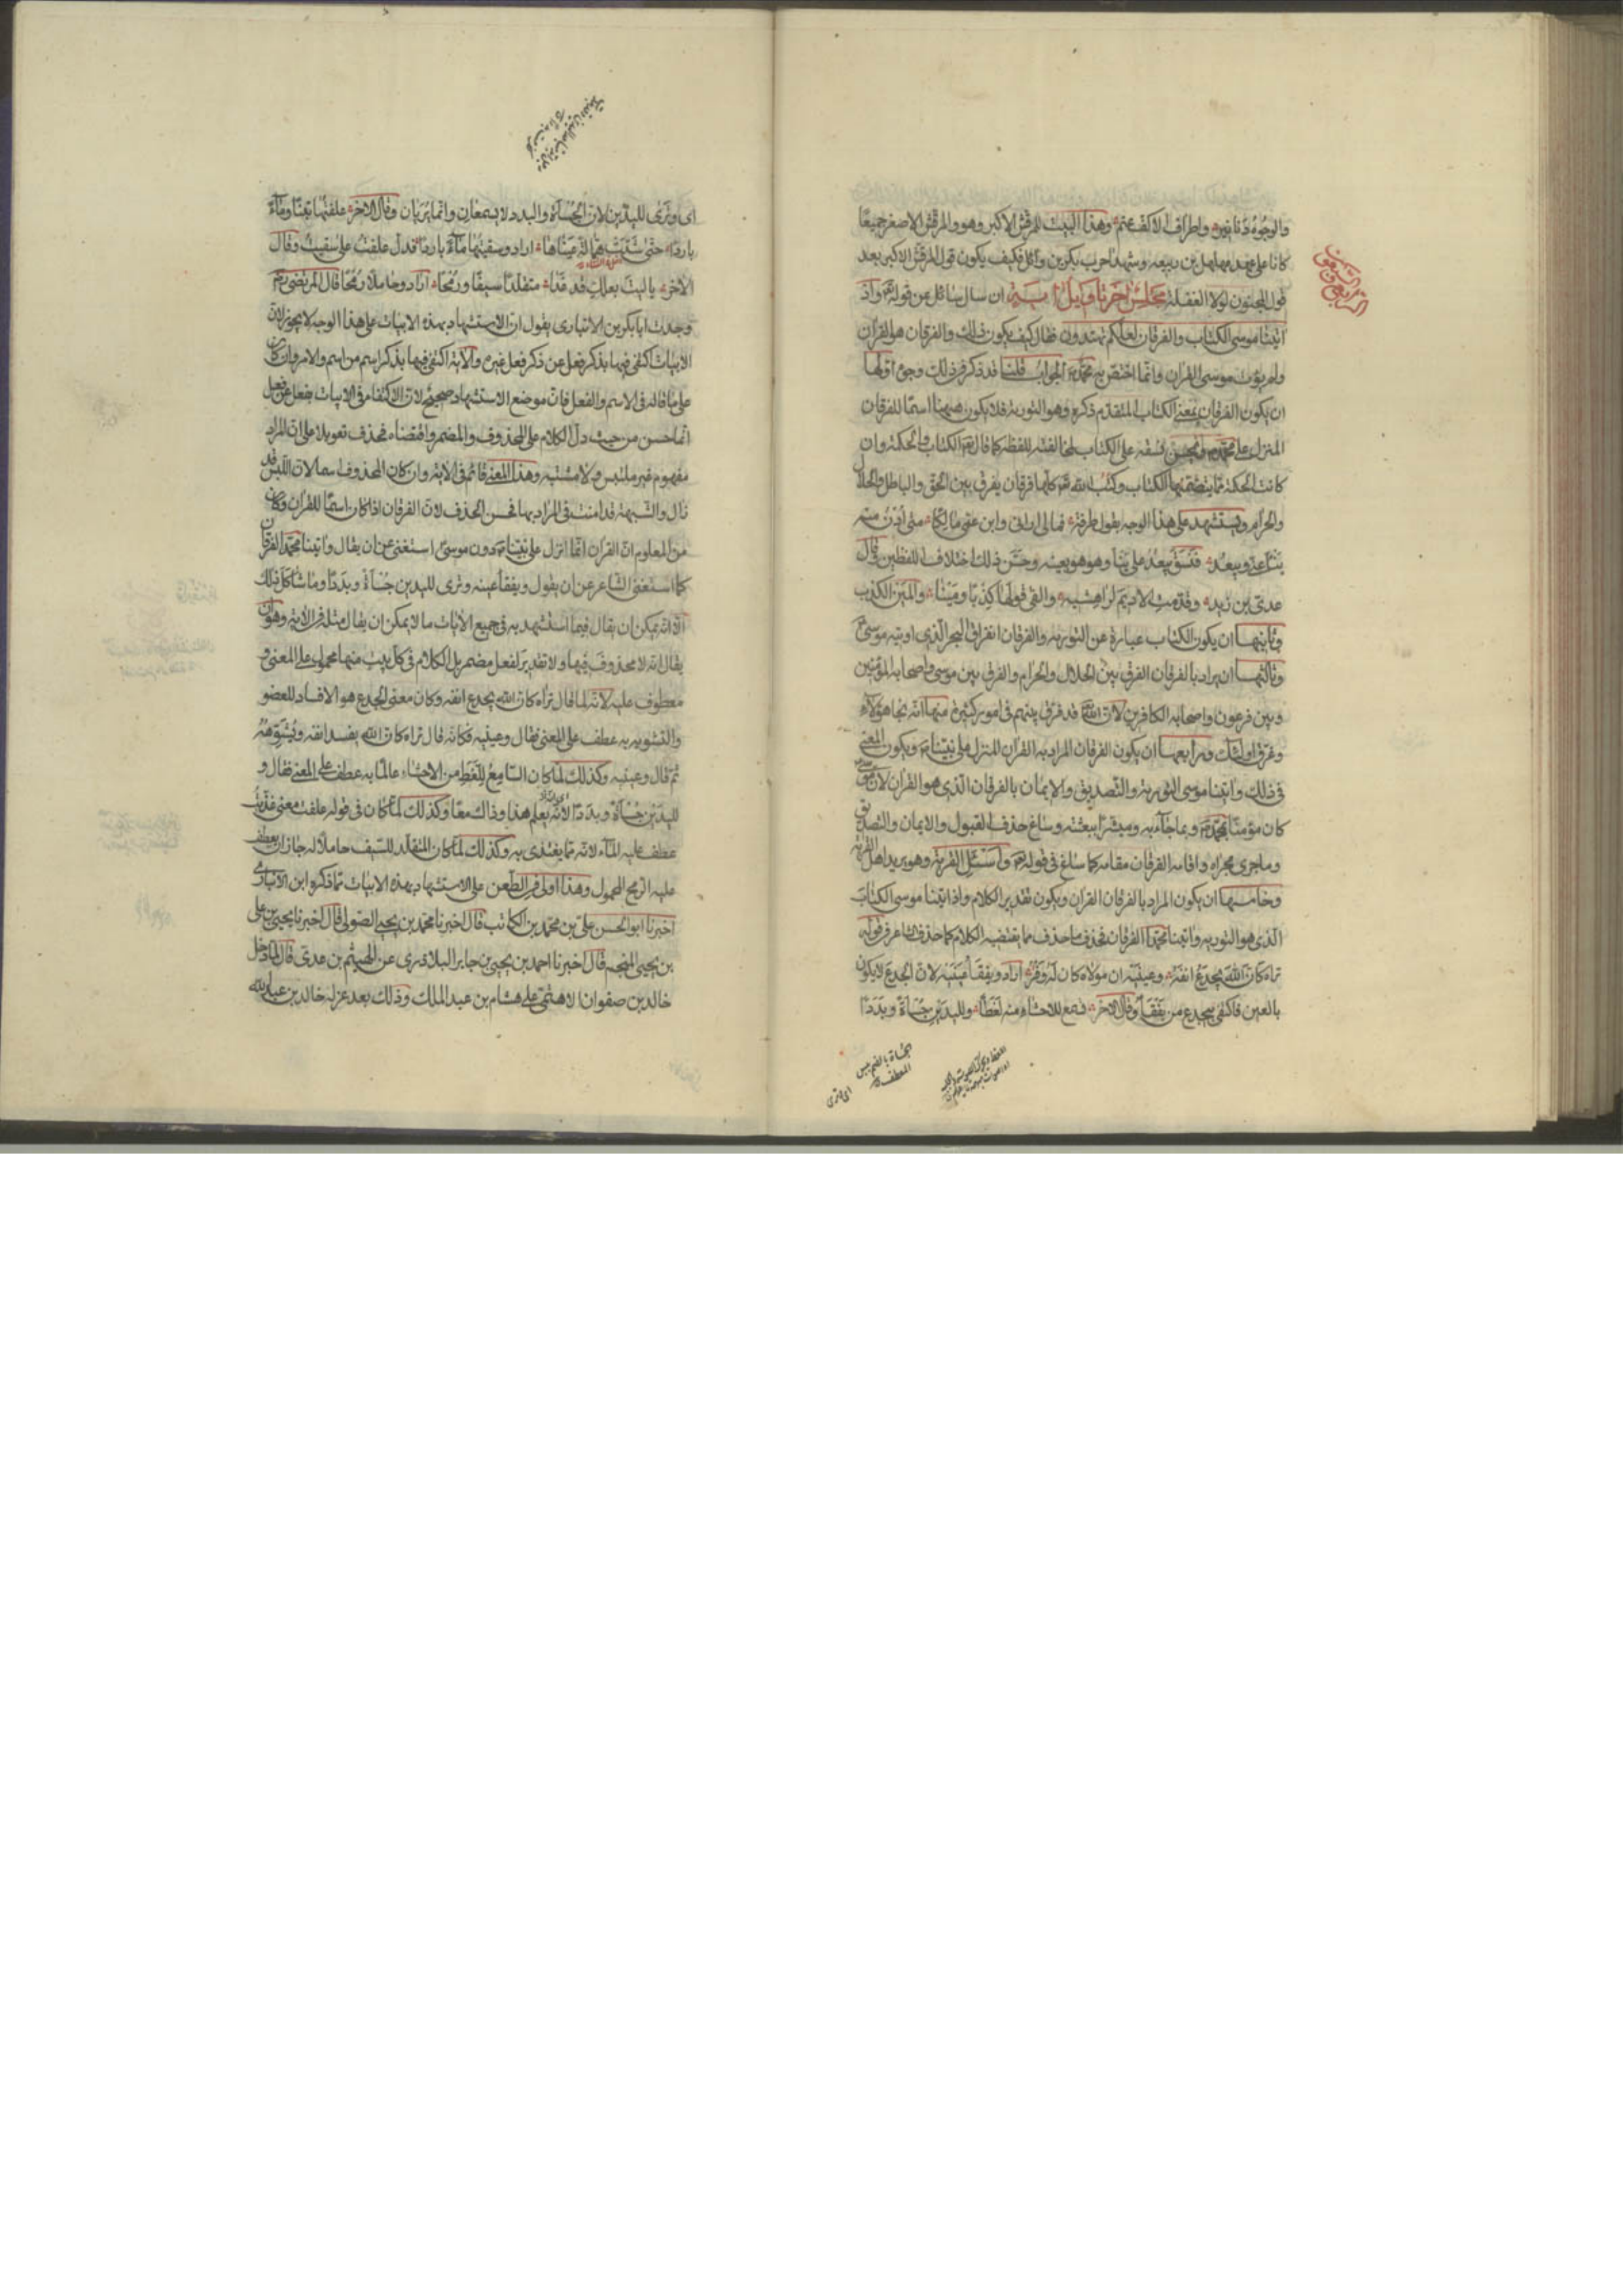 والوجوه دنانير واطراف الاكف عنم وهذا البيت للمرقش الاكبر وهو والمرقش الاصغر جميعًا
كانا على عهد مهلهل بن ربيعه وشهدا حرب بكر بن وآئل فكيف يكون قول المرقش الاكبر بعد
قول المجنون لولا الغفلة مجلس اخر تاويل اية ان سال سائل عن قوله تع واذ
اتينا موسى الكتاب والفرقان لعلكم تهتدون فقال كيف يكون ذلك والفرقان هو القرآن
ولم يؤت موسى القرآن وانما اختص به محمد الجواب قلنا قد ذكر في ذلك وجوه اولها
ان يكون الفرقان بمعنى الكتاب المتقدم ذكره وهو التورية فلا يكون ههنا اسمًا للفرقان
المنزل على محمد ويحسن نسقه على الكتاب لمخالفته للفظه كما قال تع الكتاب والحكمة وان
كانت الحكمة مما يتضمنها الكتاب وكتب الله تع كلها فرقان يفرق بين الحق والباطل والحلال
والحرام ويستشهد على هذا الوجه بقول طرفة فمالى ارانى وابن عمى مالكا متى ادن منه
ينأ عنى ويبعد فنسق يبعد على ينأ وهو هو بعينه وحسّن ذلك اختلاف اللفظين وقال
عدى بن زيد وقدمت الاديم لراهشيه والفى قولها كذبا ومينا والمين الكذب
وثانيها ان يكون الكتاب عبارة عن التورية والفرقان انفراق البحر الذى اوتيه موسى
وثالثها ان يراد بالفرقان الفرق بين الحلال والحرام والفرق بين موسى واصحابه المؤمنين
وبين فرعون واصحابه الكافرين لان الله قد فرق بينهم فى امور كثيرة منها انه نجا هؤلاء
وغرق اولئك ورابعها ان يكون الفرقان المراد به القرآن المنزل على نبينا ويكون المعنى
فى ذلك واتينا موسى التورية والتصديق والايمان بالفرقان الذى هو القرآن لان موسى
كان مؤمنا بمحمد وبما جآء به ومبشرا ببعثته وساغ حذف القبول والايمان والتصديق
وما جرى مجراه واقامة الفرقان مقامه كما ساغ فى قوله تع واسئل القرية وهو يريد اهل القرية
وخامسها ان يكون المراد بالفرقان القرآن ويكون تقدير الكلام واذ اتينا موسى الكتاب
الذى هو التورية واتينا محمدا الفرقان فحذف ما حذف مما يقتضيه الكلام كما حذف الشاعر فى قوله
تراه كان الله يجدع انفه وعينيه ان مولاه كان له وفر اراد ويفقأ عينيه لان الجدع لا يكون
بالعين فاكتفى بيجدع من يفقأ وقال الاخر تسمع للاحشاء منه لغطا ولليدين جسأة وبددا
اى وترى لليدين لان الجسأة والبدد لا يسمعان وانما يريان وقال الاخر علفتها تبنا ومآء
باردا حتى شتت همالة عيناها اراد وسقيتها مآء باردا فدل علفت على سقيت وقال
الاخر يا ليت بعلك قد غدا متقلدا سيفا ورمحا اراد وحاملا رمحا قال المرتضى رض
وجدت ابا بكر بن الانبارى يقول ان الاستشهاد بهذه الابيات على هذا الوجه لا يجوز لان
الابيات اكتفى فيها بذكر فعل عن ذكر فعل غيره والاية اكتفى فيها بذكر اسم من اسم والامر وان كان
على ما قاله فى الاسم والفعل فان موضع الاستشهاد صحيح لان الاكتفاء فى الابيات بفعل عن فعل
انما حسن من حيث دل الكلام على المحذوف والمضمر واقتضاه فحذف تعويلا على ان المراد
مفهوم غير ملتبس ولا مشتبه وهذا المعنى قائم فى الاية وان كان المحذوف اسما لان اللبس قد
زال والشبهة قد امنت فى المراد بها فحسن الحذف لان الفرقان اذا كان اسمًا للقرآن وكان
من المعلوم ان القرآن انما انزل على نبينا دون موسى استغنى عن ان يقال واتينا محمدا الفرقان
كما استغنى الشاعر عن ان يقول ويفقأ عينه وترى لليدين جسأة وبددا وما شاكل ذلك
الا انه يمكن ان يقال فيما استشهد به فى جميع الابيات ما لا يمكن ان يقال مثله فى الاية وهو ان
يقال انه لا محذوف فيها ولا تقدير لفعل مضمر بل الكلام فى كل بيت منها محمول على المعنى و
معطوف عليه لانه لما قال تراه كان الله يجدع انفه وكان معنى الجدع هو الافساد للعضو
والتشويه به عطف على المعنى فقال وعينيه فكانه قال تراه كان الله يفسد انفه ويشوهه
ثم قال وعينيه وكذلك لما كان السامع للغط من الاحشاء عالما به عطف على المعنى فقال و
لليدين جسأة وبددا لانه يعلم هذا وذاك معا وكذلك لما كان فى قوله علفت معنى غذيت
عطف عليه المآء لانه مما يغتذى به وكذلك لما كان المتقلد للسيف حاملا له جاز ان يعطف
عليه الرمح المحمول وهذا اولى فى الطعن على الاستشهاد بهذه الابيات مما ذكره ابن الانبارى
اخبرنا ابو الحسن على بن محمد بن الكاتب قال اخبرنا محمد بن يحيى الصولى قال اخبرنا يحيى بن على
بن يحيى المنجم قال اخبرنا احمد بن يحيى بن جابر البلاذرى عن الهيثم بن عدى قال لما دخل
خالد بن صفوان الاهتمى على هشام بن عبد الملك وذلك بعد عزله خالد بن عبد الله